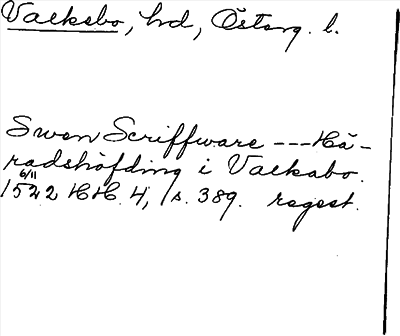 Valkebo, hrd, Österg. l.
Swen Scriffware --- Hä-
radshöfding i Valkabo.
6/11
1522 HH. 4, s. 389. regest.